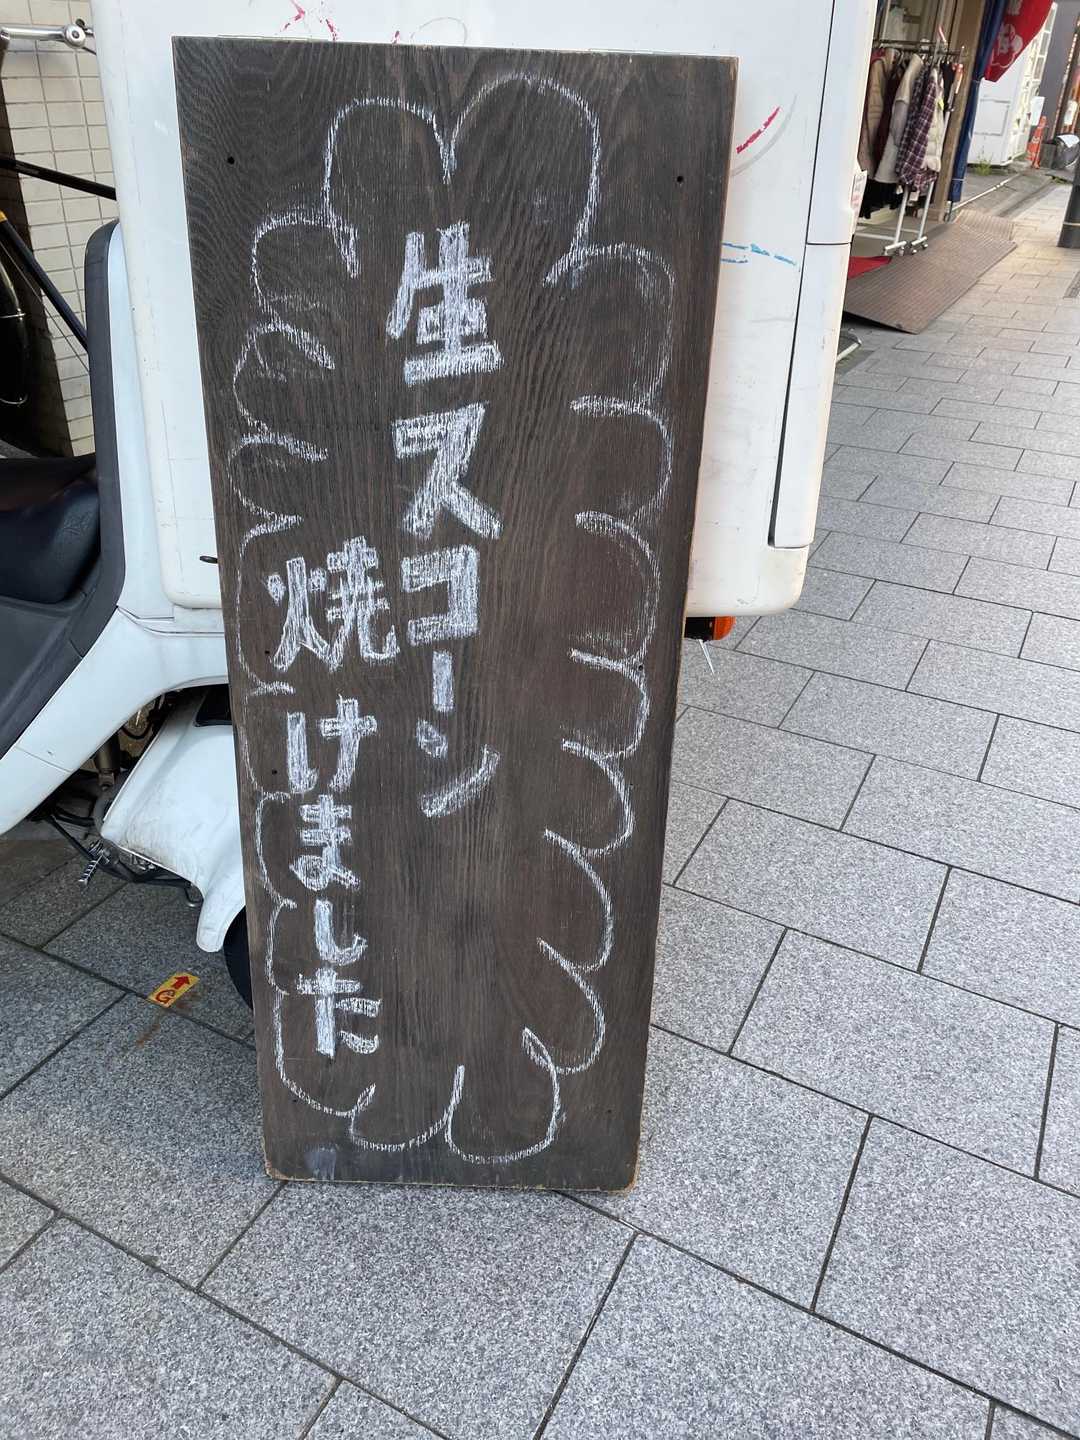 生スコーン
焼けました